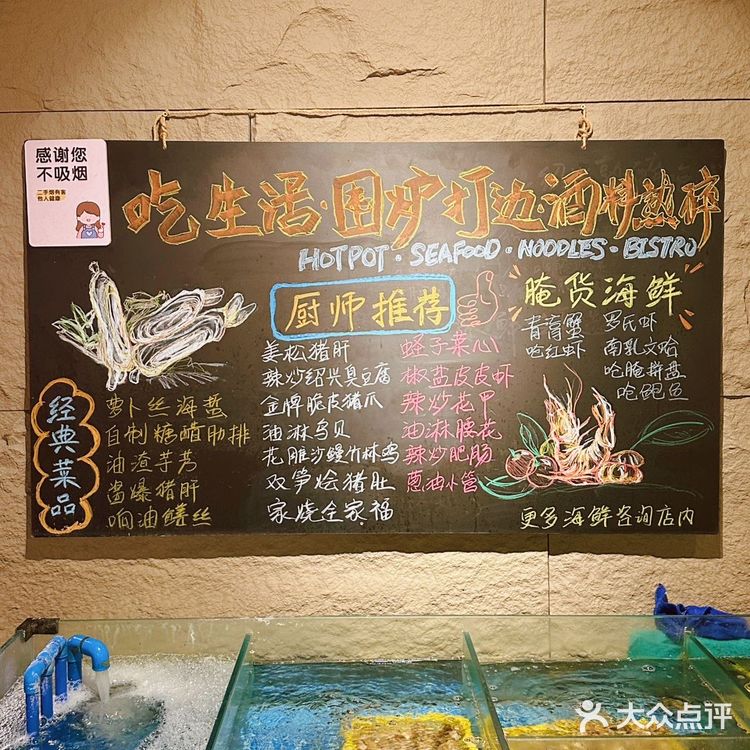 感谢您
不吸烟
二手烟有害
他人健康
吃生活·围炉打边·酒料熟碎
HOTPOT · SEAFOOD · NOODLES · BISTRO
经典菜品
萝卜丝海蜇
自制糖醋肋排
油渣芋艿
酱爆猪肝
响油鳝丝
厨师推荐
姜松猪肝
辣炒绍兴臭豆腐
金牌脆皮猪爪
油淋乌贝
花雕沙鳗竹林鸡
双笋烩猪肚
家烧全家福
蛏子菜心
椒盐皮皮虾
辣炒花甲
油淋腰花
辣炒肥肠
葱油小管
腌货海鲜
青膏蟹
呛红虾
罗氏虾
南乳文哈
呛腌拼盘
呛鲍鱼
更多海鲜咨询店内
大众点评